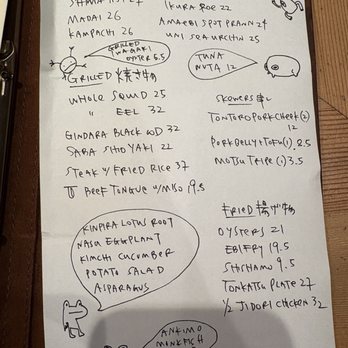 MADAI 26
KAMPACHI 26
IKURA ROE 22
AMAEBI SPOT PRAWN 24
UNI SEA URCHIN 25
GRILLED
IWAGAKI
OYSTER 6.5
TUNA
NUTA 12
GRILLED 焼き物
WHOLE SQUID 25
" EEL 32
GINDARA BLACK COD 32
SABA SHIOYAKI 22
STEAK W/ FRIED RICE 37
BEEF TONGUE W/MISO 19.5
SKEWERS 串し
TONTORO PORK CHEEK (2)
12
PORK BELLY + TOFU (1) 8.5
MOTSU TRIPE (1) 3.5
KINPIRA LOTUS ROOT
NASU EGGPLANT
KIMCHI CUCUMBER
POTATO SALAD
ASPARAGUS
FRIED 揚げ物
OYSTERS 21
EBI FRY 19.5
SHISHAMO 9.5
TONKATSU PLATE 27
1/2 JIDORI CHICKEN 32
ANKIMO
MONKFISH